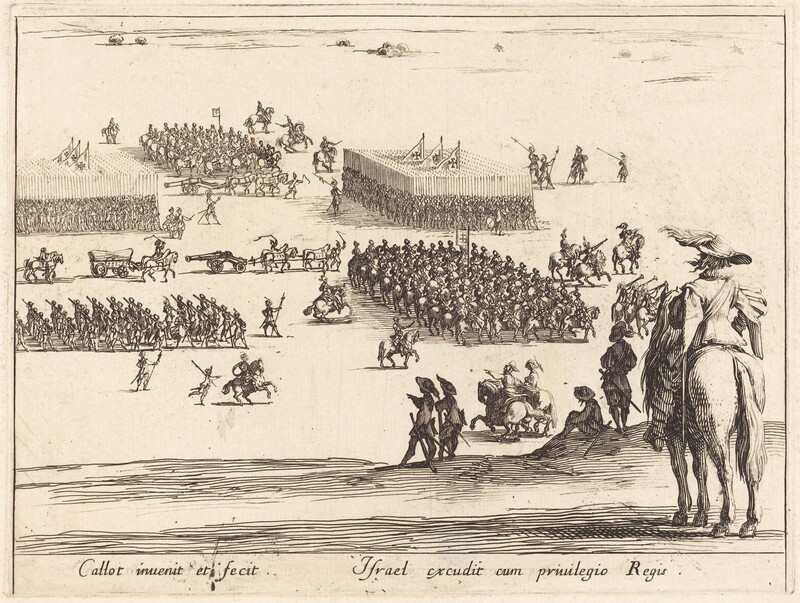 Callot inuenit et fecit . . Israel excudit cum priuilegio Regis .